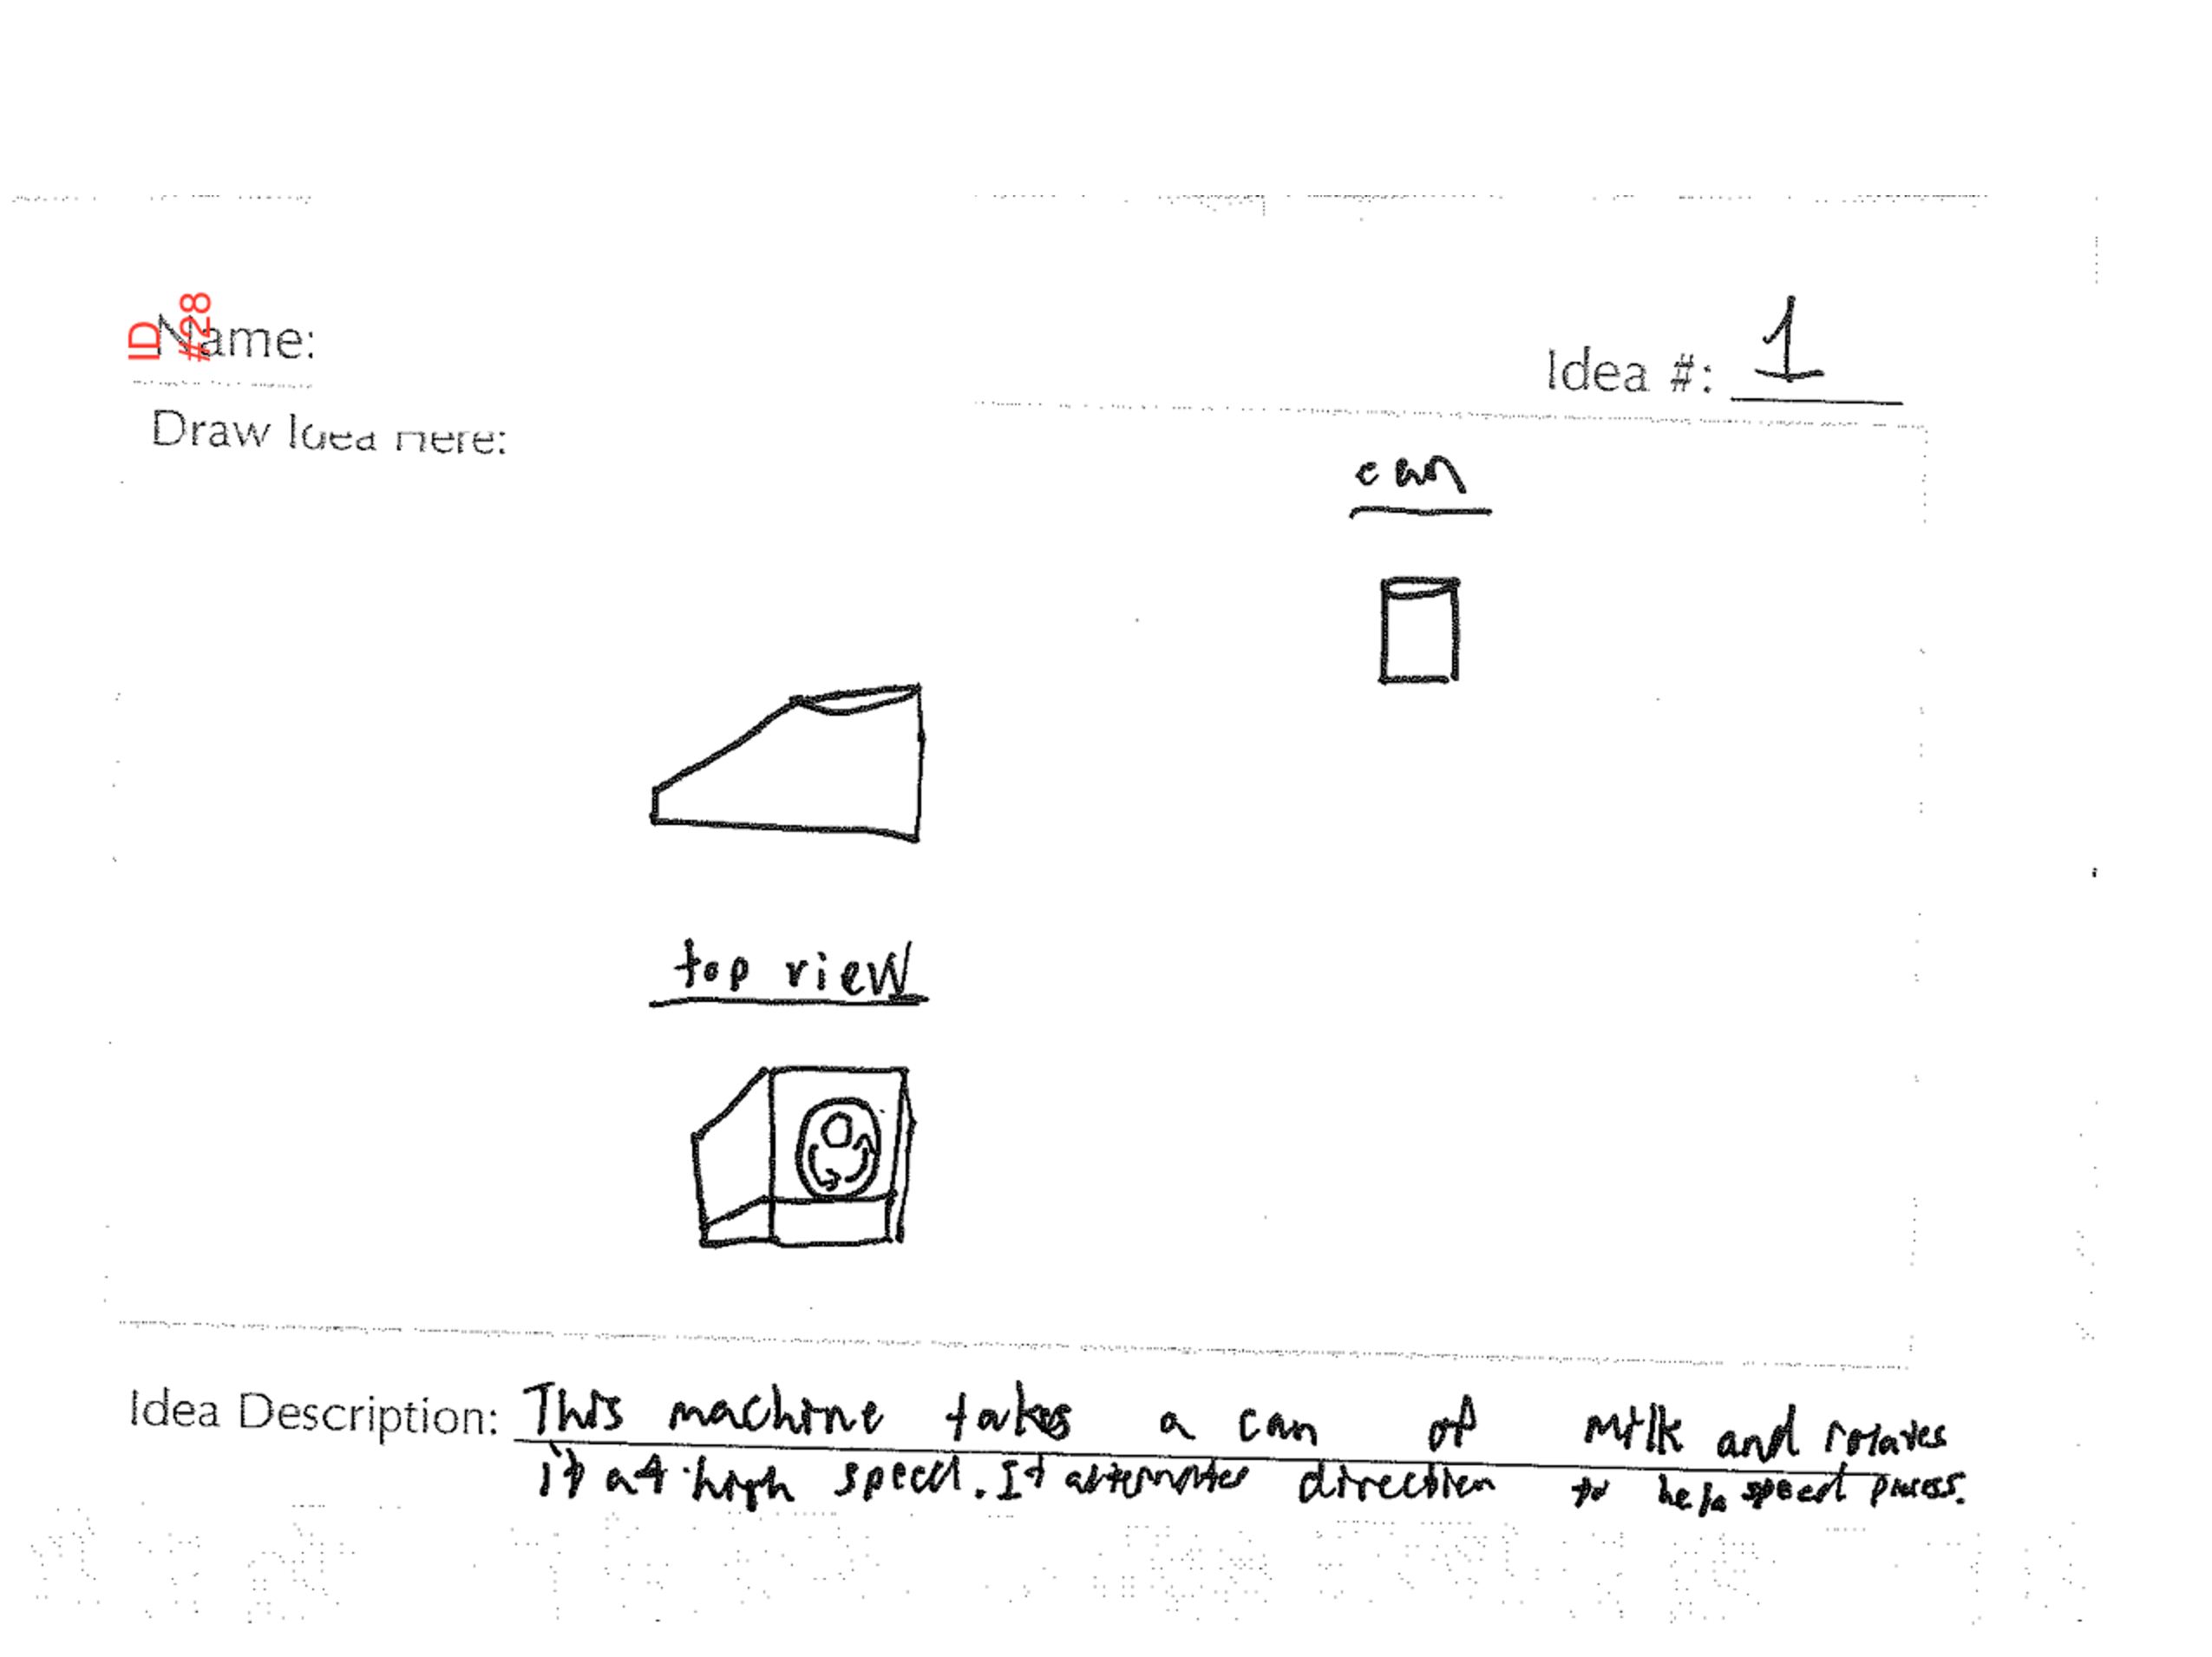 ID
#28
Name:
Idea #: 1
Draw Idea Here:
can
top view
Idea Description: This machine takes a can of milk and rotates
it at high speed. It alternates direction to help speed process.